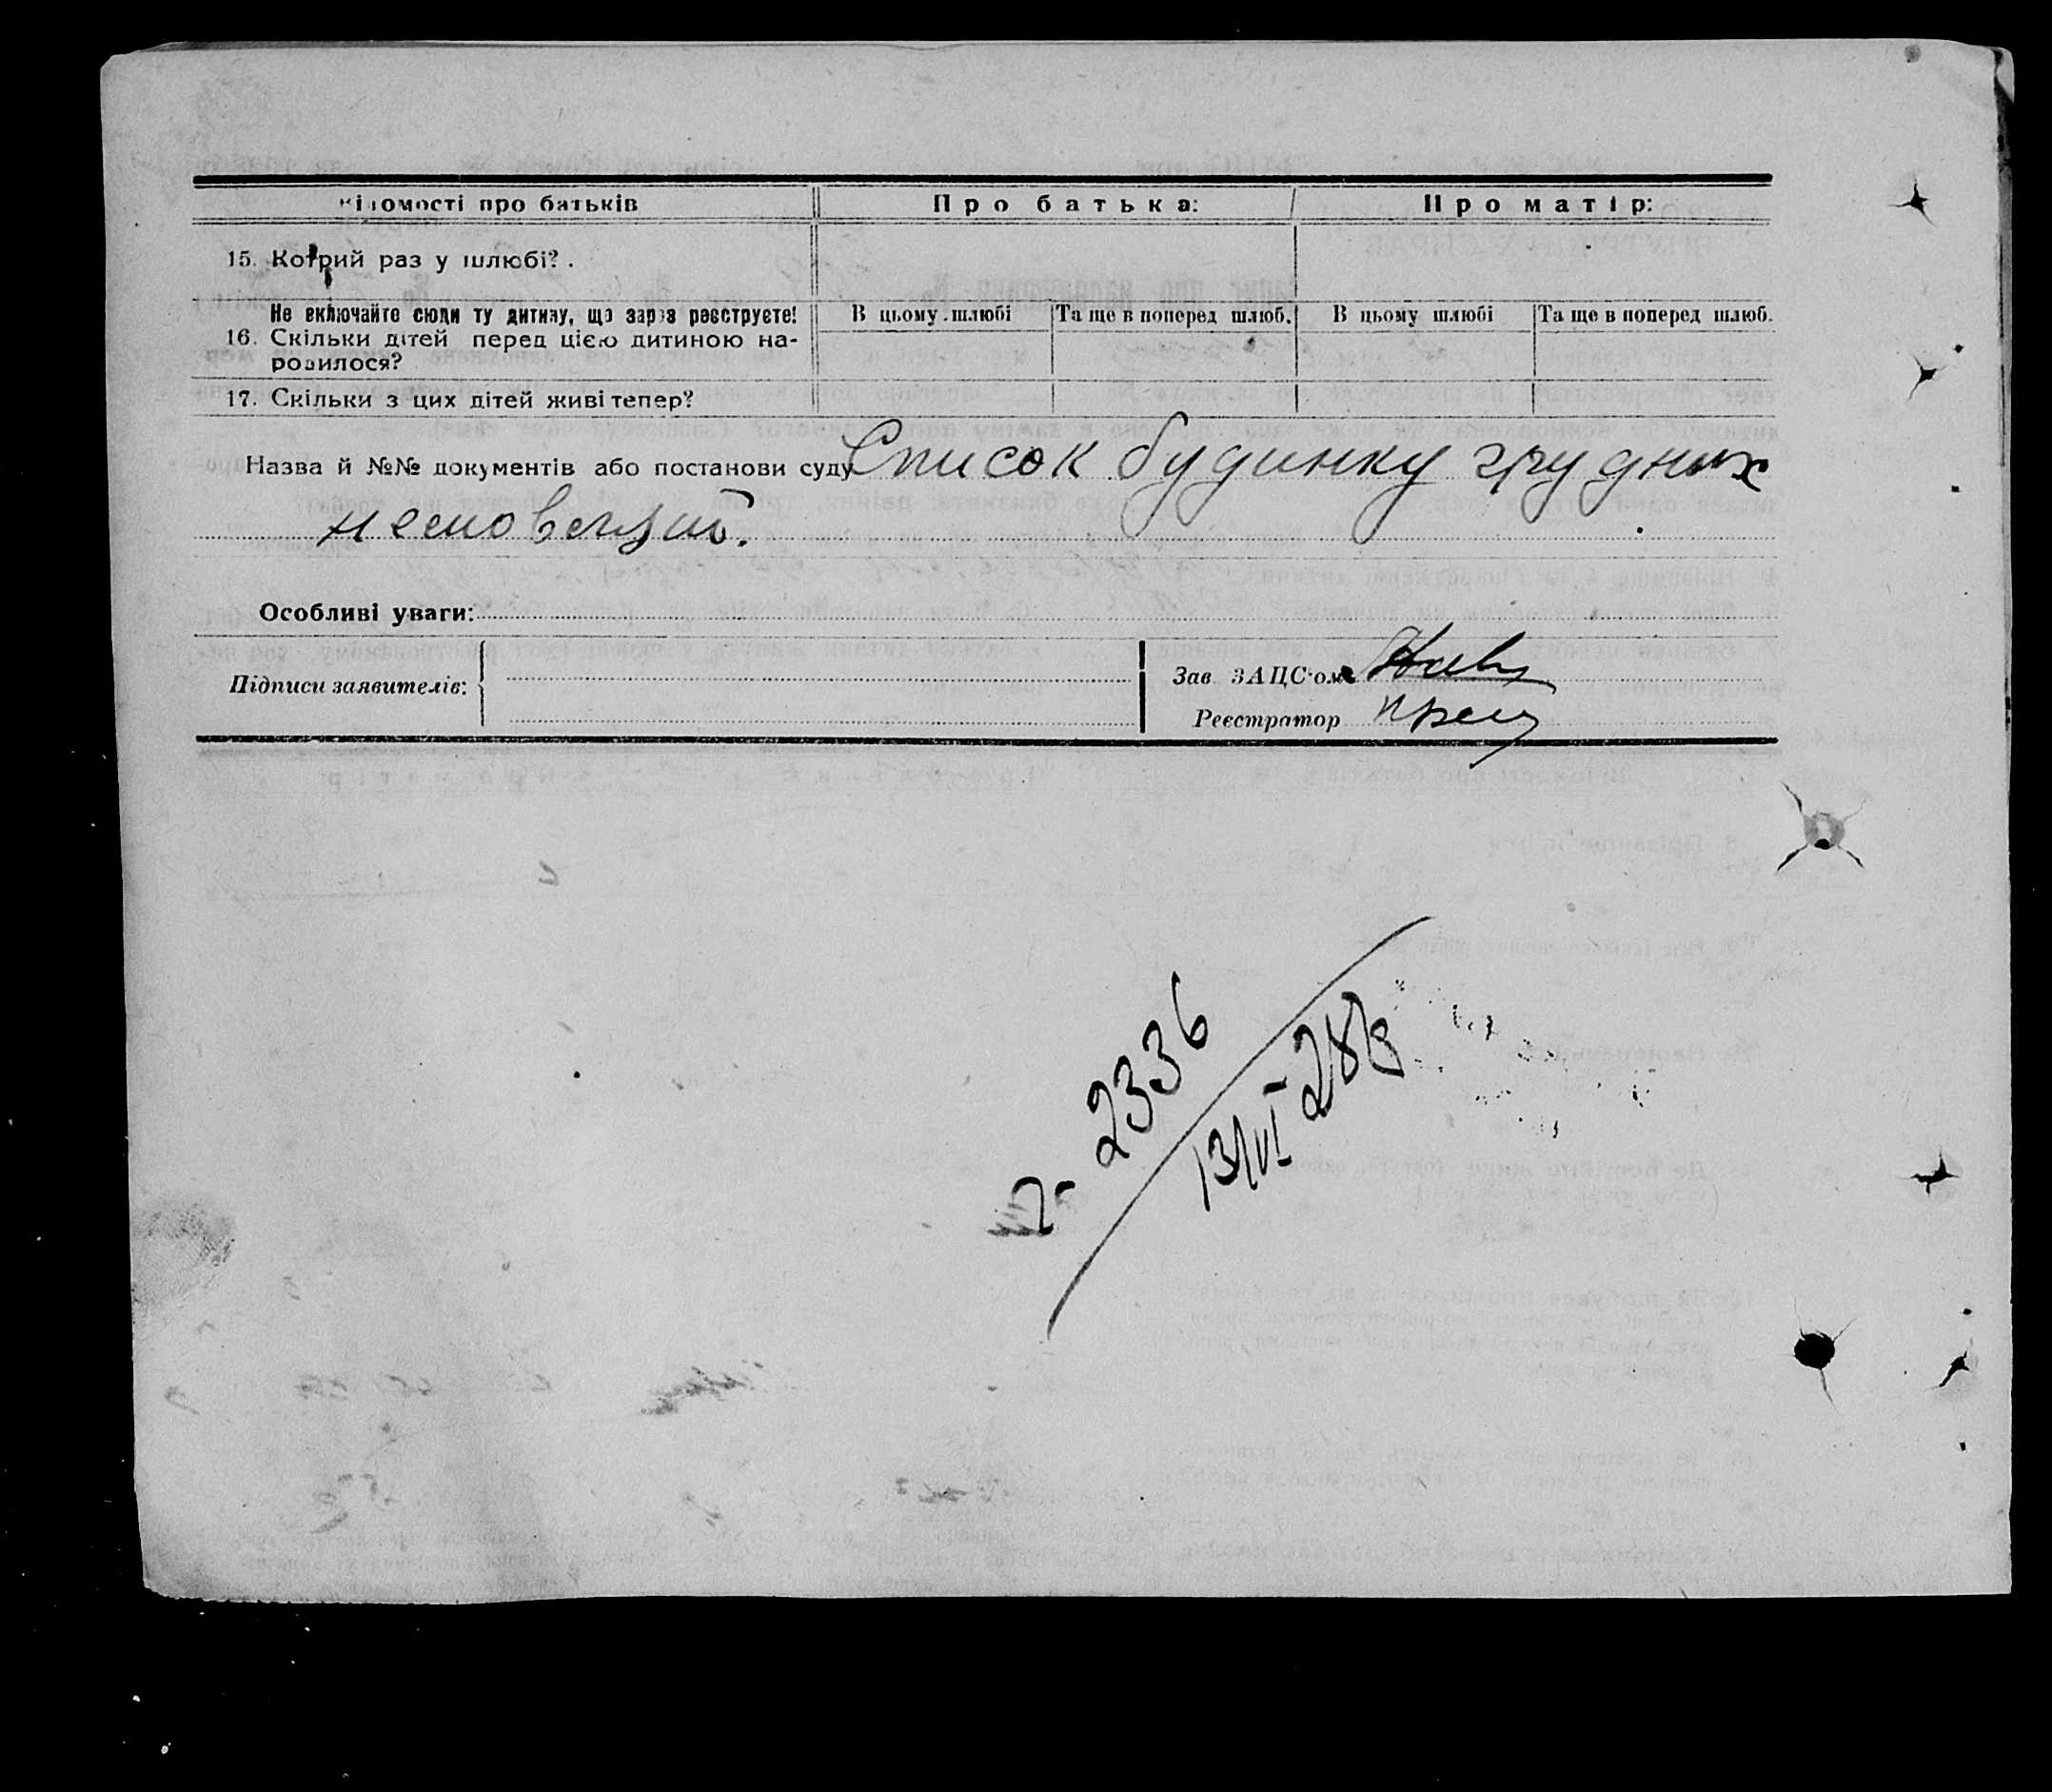 Відомості про батьків
Про батька:
Про матір:
15. Котрий раз у шлюбі?
Не включайте сюди ту дитину, що зараз реєструєте!
В цьому шлюбі
Та ще в поперед шлюб.
В цьому шлюбі
Та ще в поперед шлюб.
16. Скільки дітей перед цією дитиною на-
родилося?
17. Скільки з цих дітей живі тепер?
Назва й №№ документів або постанови суду Список будинку грудних
немовлят.
Особливі уваги:
Підписи заявителів:
Зав ЗАЦС'ом
Реєстратор
2336
13/VI-28